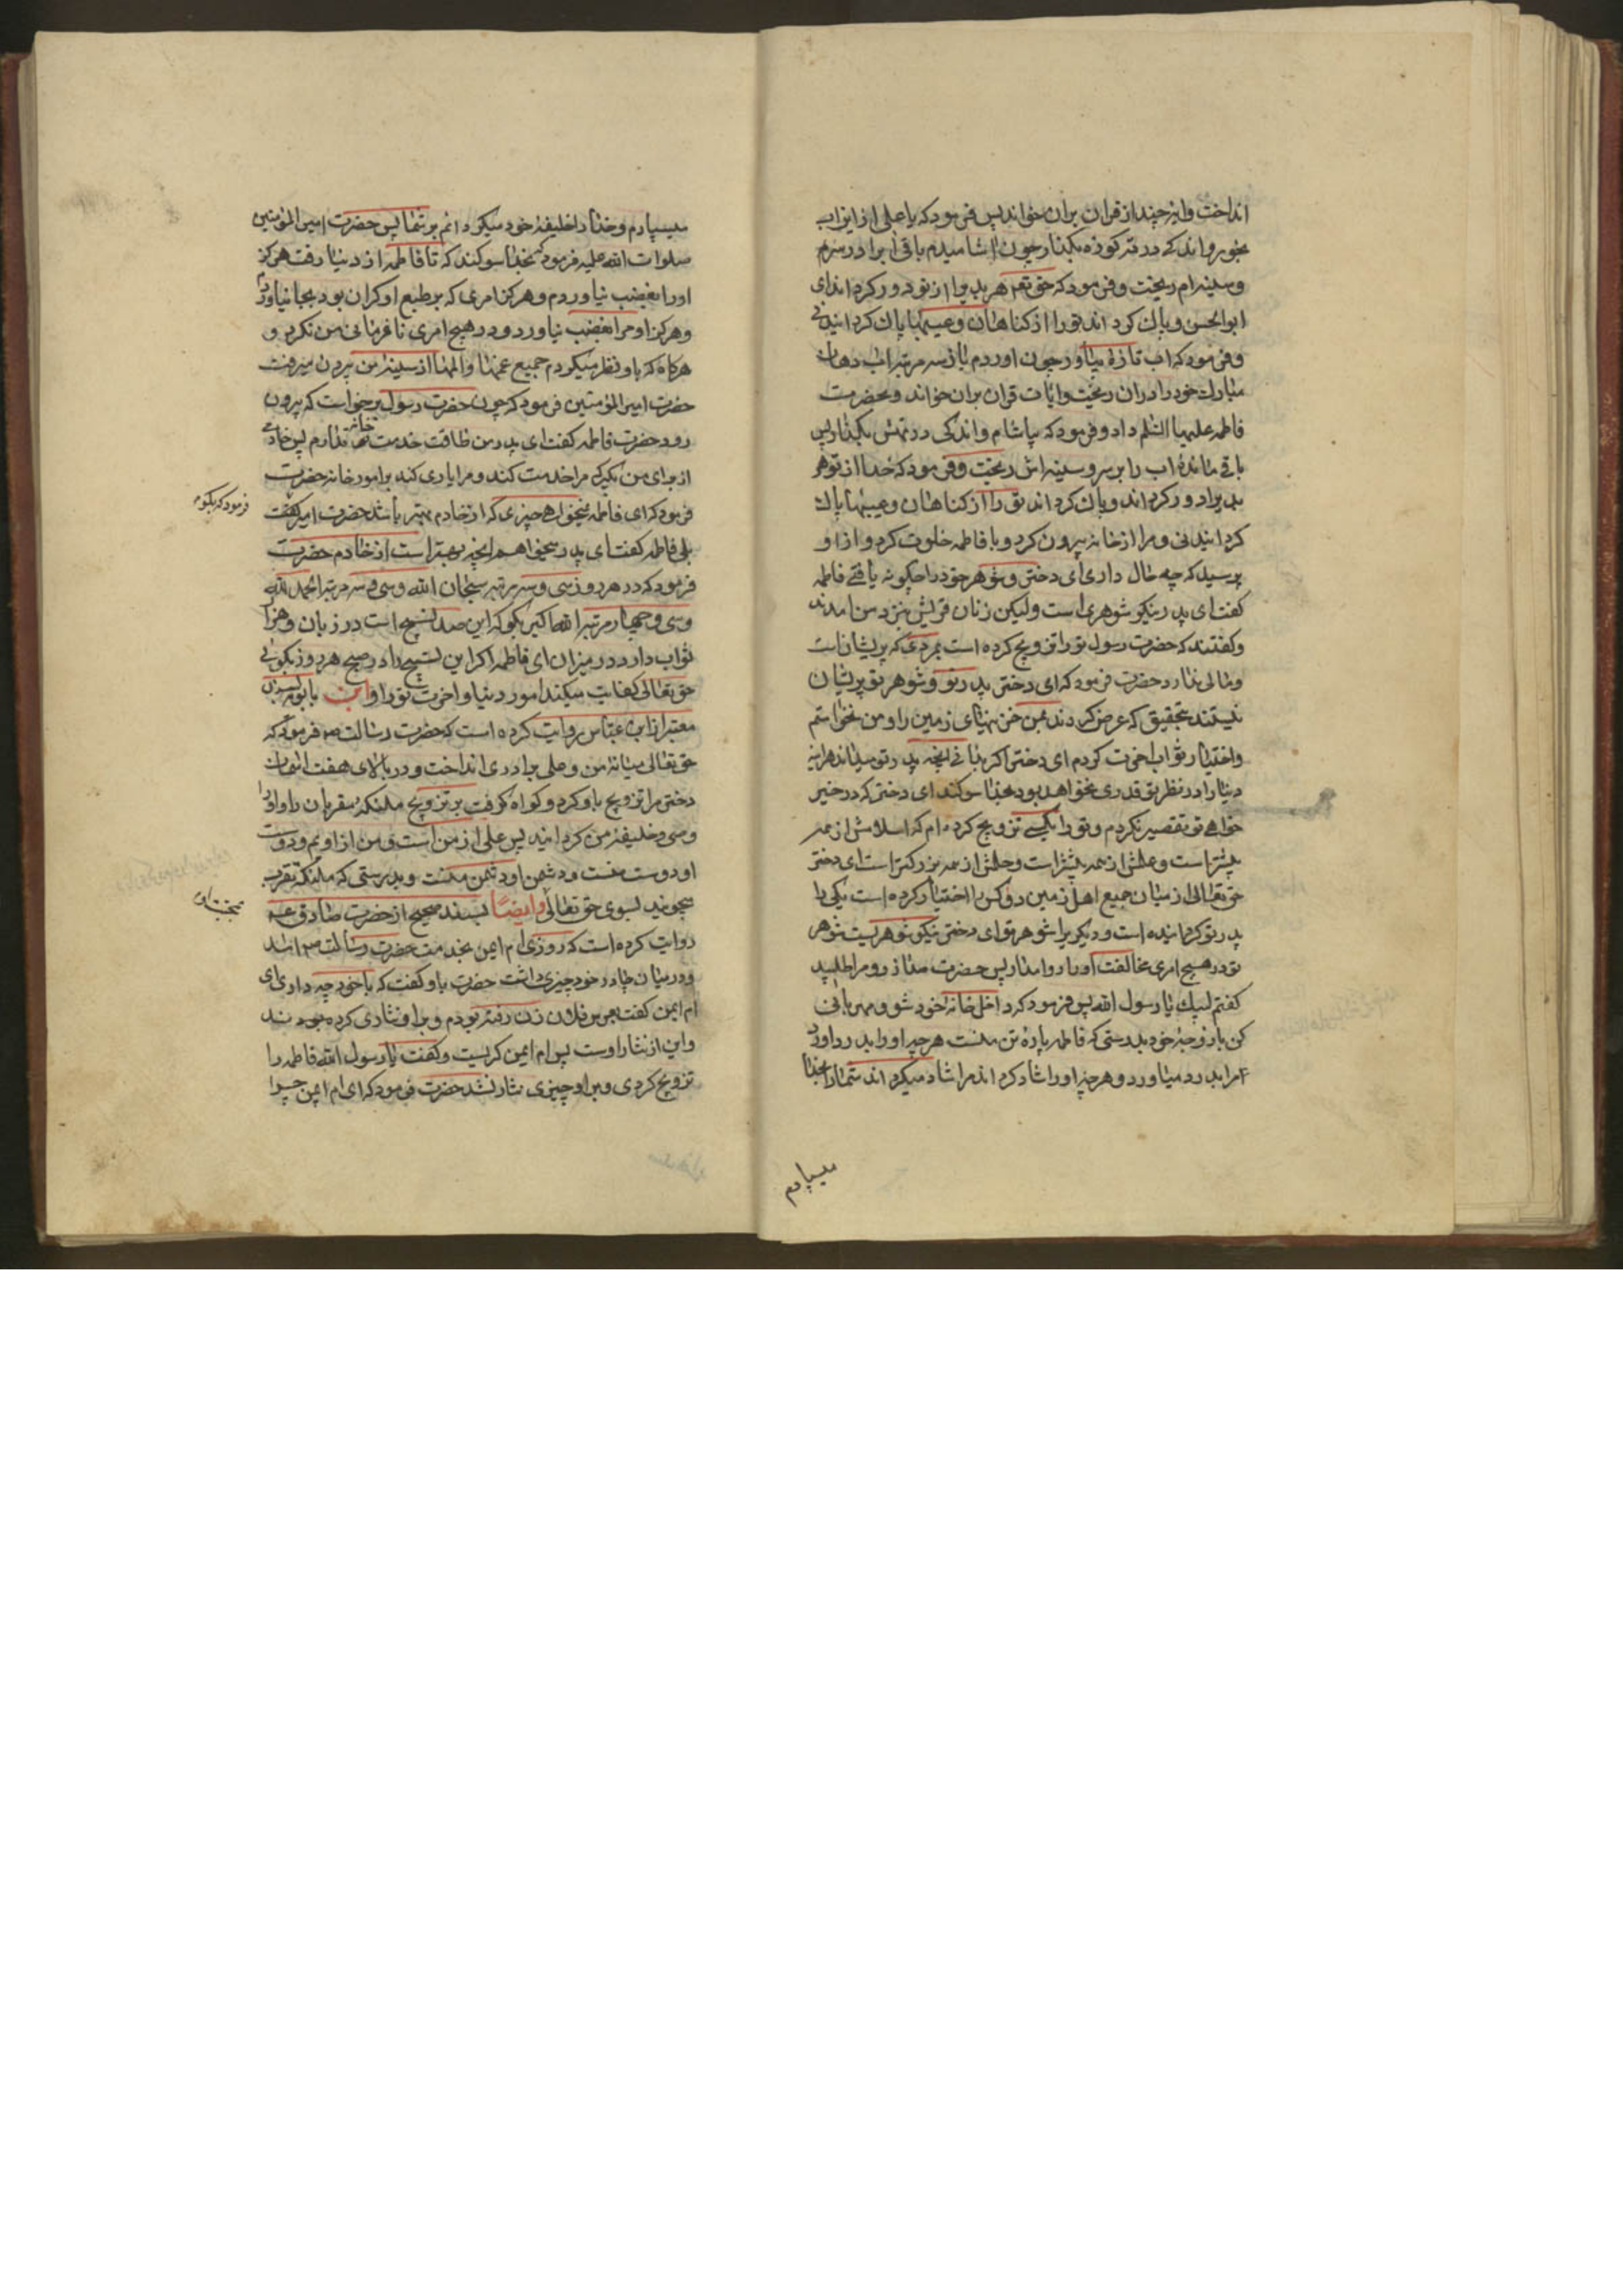 انداخت وایۀ چند از قران بران خواند پس فرمود که یا علی از این اب
بخور و اندکی در ته کوزه بگذار چون اشامیدم باقی ابرا در سرم
و سینه ام ریخت و فرمود که حق تعم هر بدیرا از تو دور کرداند ای
ابو الحسن و پاک کرداند تو را از کناهان و عیبها پاک کردانیدنی
و فرمود که اب تازۀ بیاور چون اوردم باز سه مرتبه اب دهان
مبارک خود را دران ریخت و ایات قران بران خواند و بحضرت
فاطمه علیها السّلم داد و فرمود که بیاشام و اندکی در تهش بگذار پس
باقی ماندۀ اب را بر سر و سینه اش ریخت و فرمود که خدا از تو هر
بدیرا دور کرداند و پاک کرداند تو را از کناهان و عیبها پاک
کردانیدنی و مرا از خانه بیرون کرد و با فاطمه خلوت کرد و از او
پرسید که چه حال داری ای دختر و شوهر خود را چکونه یافتی فاطمه
کفت ای پدر نیکو شوهری است ولیکن زنان قریش بنزد من امدند
و کفتند که حضرت رسول تو را تزویج کرده است بمردی که پریشانست
و مالی ندارد حضرت فرمود که ای دختر پدر تو و شوهر تو پریشان
نیستند بتحقیق که عرض کردند بمن خزینهای زمین را و من نخواستم
و اختیار ثواب اخرت کردم ای دختر اکر بدانی انچه پدر تو میداند هراینه
دنیا را در نظر تو قدری نخواهد بود بخدا سوکند ای دختر که در خیر
خواهی تو تقصیر نکردم و تو را بکسی تزویج کرده ام که اسلامش از همه
پیشتر است و علمش از همه بیشتر است و حلمش از همه بزرکتر است ای دختر
حق تعالی از میان جمیع اهل زمین دو کس را اختیار کرده است یکی را
پدر تو کردانیده است و دیکری را شوهر تو ای دختر نیکو شوهریست شوهر
تو در هیچ امری مخالفت او را روا مدار پس حضرت مرا طلبید
کفتم لبیک یا رسول الله پس فرمود که داخل خانه خود شو و مهربانی
کن با زوجۀ خود بدرستی که فاطمه پارۀ تن منست هر چه او را بدرد اورد
مرا بدرد میاورد و هر چه او را شاد کرداند مرا شاد میکرداند شما را بخدا
میسپارم
میسپارم و خدا را خلیفۀ خود میکردانم بر شما پس حضرت امیر المؤمنین
صلوات الله علیه فرمود که بخدا سوکند که تا فاطمه از دنیا رفت هرکز
او را بغضب نیاوردم و هرکز امری که بر طبع او کران بود بجا نیاوردم
و هرکز او مرا بغضب نیاورد و در هیچ امری نافرمانی من نکرد و
هرکاه که باو نظر میکردم جمیع غمها و المها از سینۀ من بیرون میرفت
حضرت امیر المؤمنین فرمود که چون حضرت رسول برخواست که بیرون
رود حضرت فاطمه کفت ای پدر من طاقت خدمت خانه ندارم پس خادمی
از برای من بکیر که مرا خدمت کند و مرا یاری کند بر امور خانه حضرت
فرمود که ای فاطمه نمیخواهی چیزی که از خادم بهتر باشد حضرت امیر کفت
فرمود که بکو
بلی فاطمه کفت ای پدر میخواهم انچه بهتر است از خادم حضرت
فرمود که در هر روز سی و سه مرتبه سبحان الله و سی و سه مرتبه الحمد لله
و سی و چهار مرتبه الله اکبر بکو که این صد تسبیح است در زبان و هزار
ثواب دارد در میزان ای فاطمه اکر این تسبیح را در صبح هر روز بکوئی
حق تعالی کفایت میکند امور دنیا و اخرت تو را و ابن بابویه بسند
معتبر از ابن عبّاس روایت کرده است که حضرت رسالت ص فرمود که
حق تعالی میانۀ من و علی برادری انداخت و در بالای هفت اسمان
دختر مرا تزویج باو کرد و کواه کرفت بر تزویج ملئکۀ مقربان را و او را
وصی و خلیفۀ من کردانید پس علی از من است و من از اویم و دوست
او دوست منست و دشمن او دشمن منست و بدرستی که ملئکه تقرب
میجویند بسوی حق تعالی و ایضًا بسند صحیح از حضرت صادق ع
روایت کرده است که روزی ام ایمن بخدمت حضرت رسالت ص امد
و در میان چادر خود چیزی داشت حضرت باو کفت که با خود چه داری ای
ام ایمن کفت بعرس فلان زن رفته بودم و بر او نثاری کرده بودند
و این از نثار اوست پس ام ایمن کریست و کفت یا رسول الله فاطمه را
تزویج کردی و بر او چیزی نثار نشد حضرت فرمود که ای ام ایمن چرا